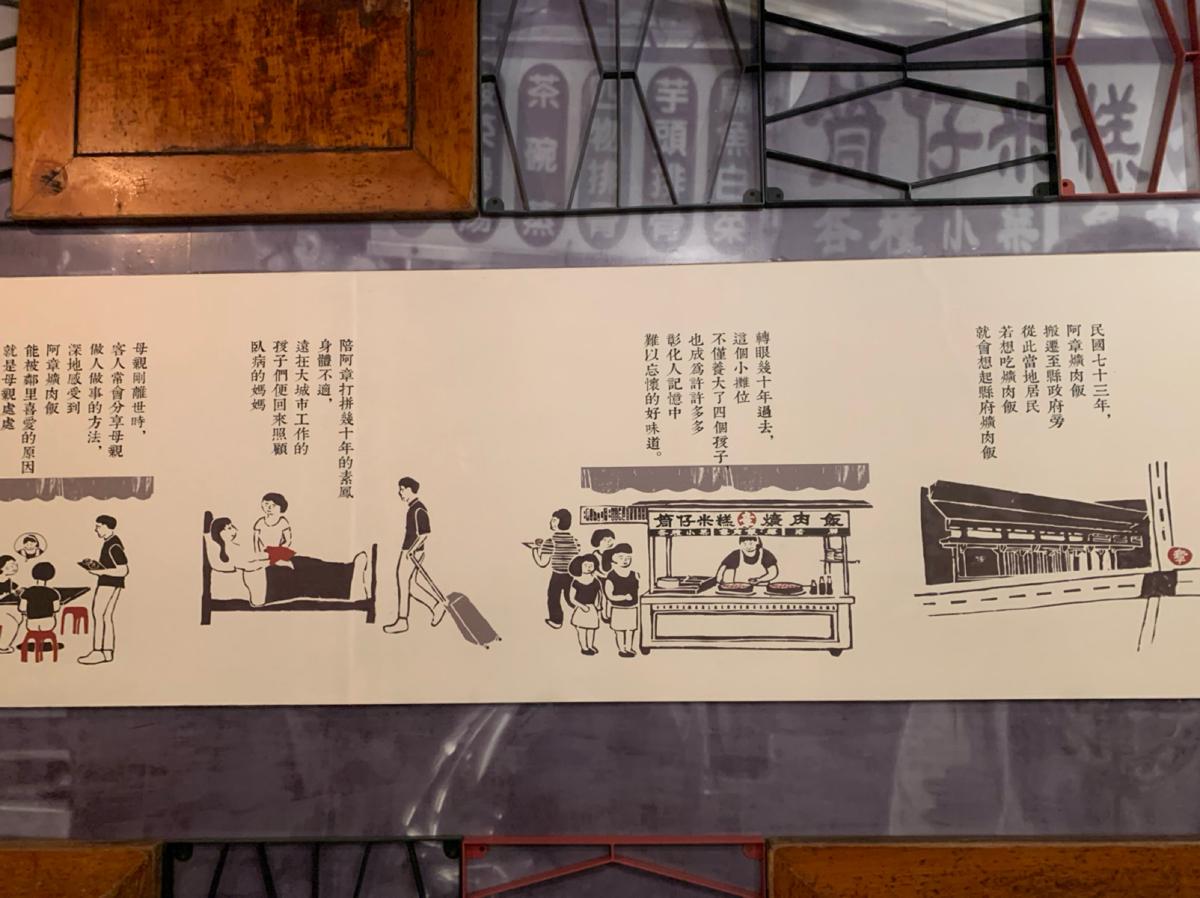 民國七十三年，
阿章爌肉飯
搬遷至縣政府旁
從此當地居民
若想吃爌肉飯
就會想起縣府爌肉飯
轉眼幾十年過去，
這個小攤位
不僅養大了四個孩子
也成為許許多多
彰化人記憶中
難以忘懷的好味道。
陪阿章打拼幾十年的素鳳
身體不適，
遠在大城市工作的
孩子們便回來照顧
臥病的媽媽
母親剛離世時，
客人常會分享母親
做人做事的方法，
深地感受到
阿章爌肉飯
能被鄰里喜愛的原因
就是母親處處
筒仔米糕 爌肉飯
筒仔米糕
各種小菜
芋頭排骨
茶碗蒸